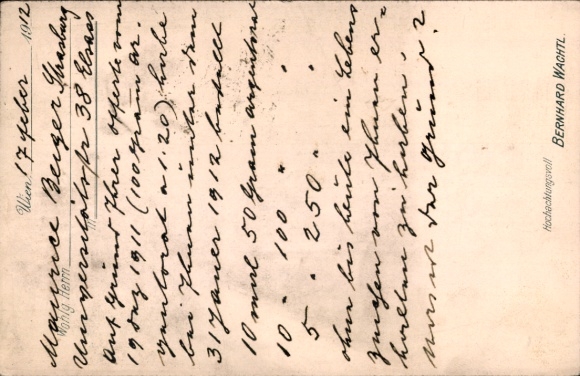 Wien 17 feber 1912
Wohlg. Herrn
Maurice Berger Strasburg
Universitätstr 38 Elsass
Auf Grund Ihrer offerte vom
19 Dez 1911 (100 Gram ar.
a 1.20) habe
bei Ihnen unter dem
31 Janer 1912 bestellt
10 mal 50 Gram
10 " 100 " "
5 " 250 " "
ohne bis heute ein Lebens
zeichen von Ihnen er=
halten zu haben.
Was ist der Grund?
Hochachtungsvoll
BERNHARD WACHTL.